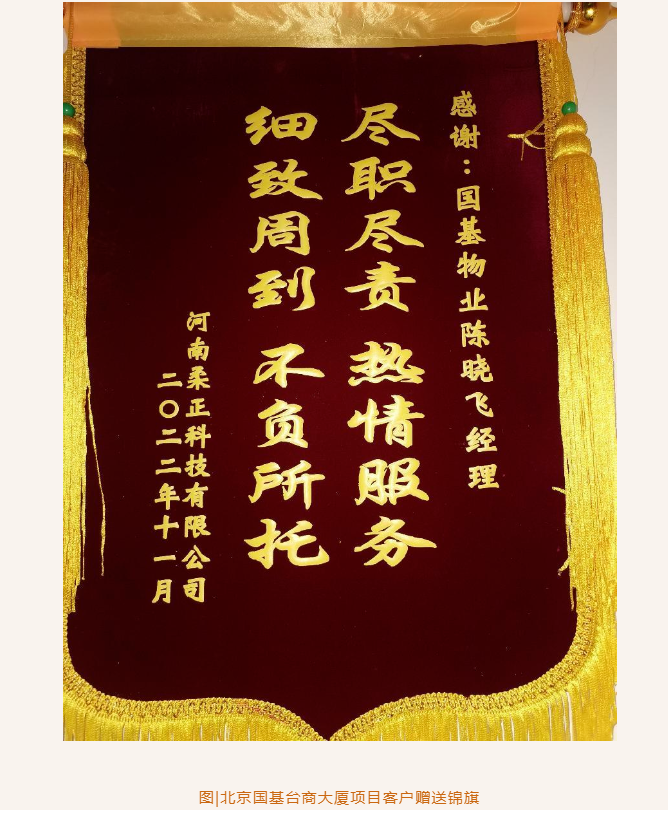 感谢：国基物业陈晓飞经理
尽职尽责 热情服务
细致周到 不负所托
河南柔正科技有限公司
二〇二二年十一月
图|北京国基台商大厦项目客户赠送锦旗